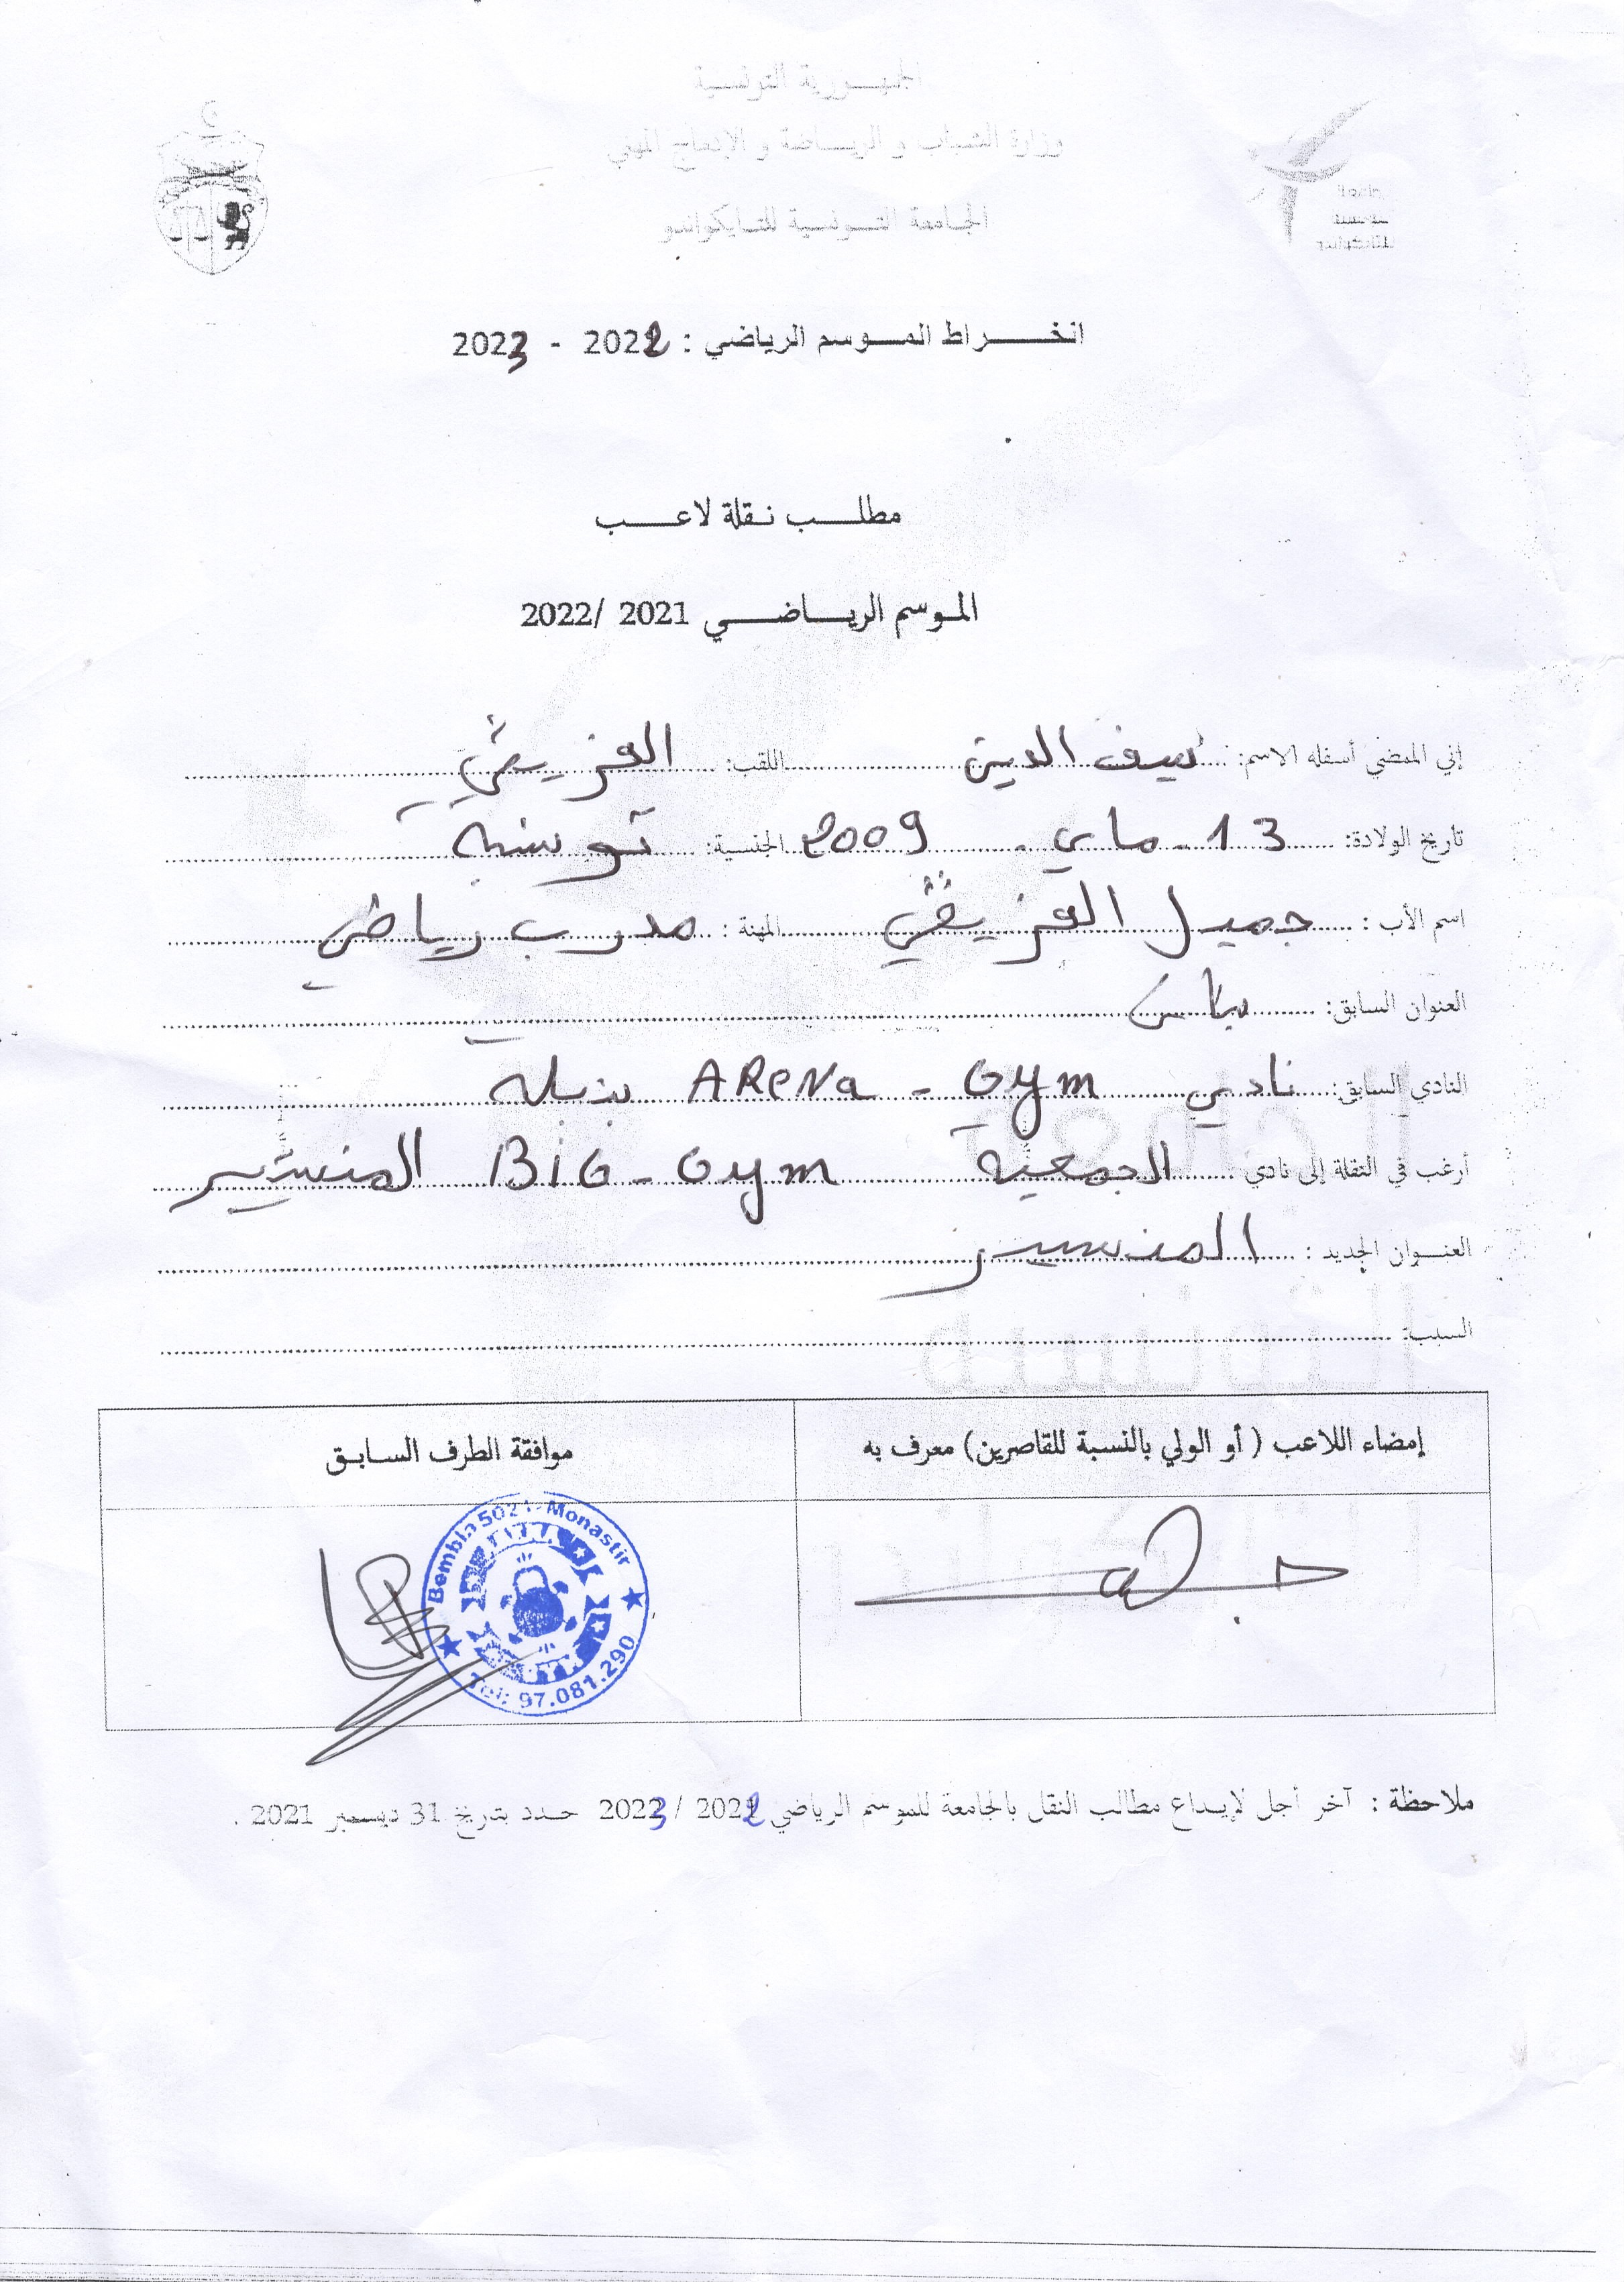 الجمهورية التونسية
وزارة الشباب و الرياضة و الإدماج المهني
الجامعة التونسية للتايكواندو
انخراط الموسم الرياضي : 2022 - 2023
مطلب نقلة لاعب
الموسم الرياضي 2021 /2022
إني الممضي أسفله الاسم: سيف الدين اللقب:
تاريخ الولادة: 13 ماي 2009 الجنسية: تونسية
اسم الأب : جميل المهنة : مدرب رياضي
العنوان السابق:
النادي السابق: نادي ARENa - Gym بنبلة
أرغب في النقلة إلى نادي الجمعية BiG - Gym المنستير
العنوان الجديد : المنستير
السبب:
إمضاء اللاعب ( أو الولي بالنسبة للقاصرين) معرف به
موافقة الطرف السابق
Bembla 502 - Monastir
Tel: 97.081.290
ملاحظة : آخر أجل لإيداع مطالب النقل بالجامعة للموسم الرياضي 2022 / 2023 حدد بتاريخ 31 ديسمبر 2021 .